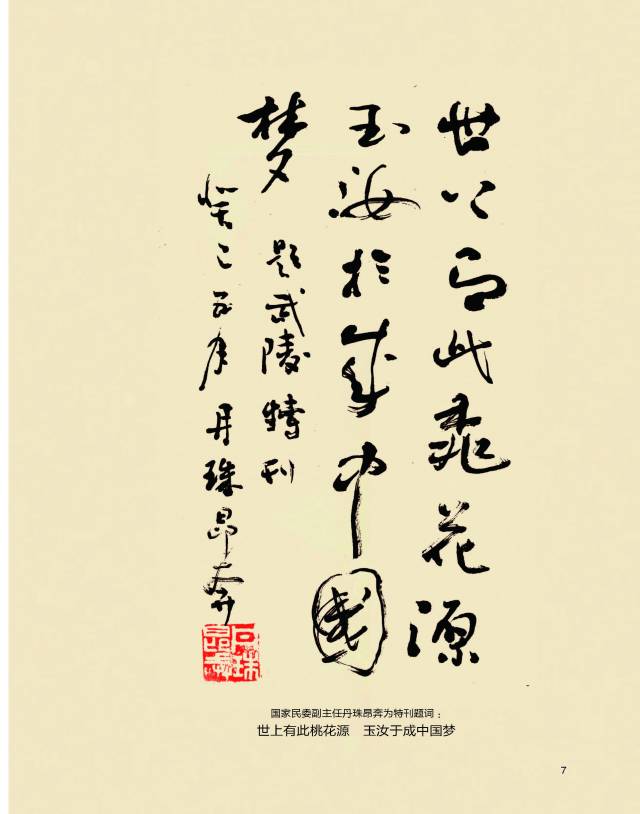 世上有此桃花源
玉汝於成中国
梦
题武陵特刊
癸巳五月丹珠昂奔
丹珠昂奔
国家民委副主任丹珠昂奔为特刊题词：
世上有此桃花源　玉汝于成中国梦
7